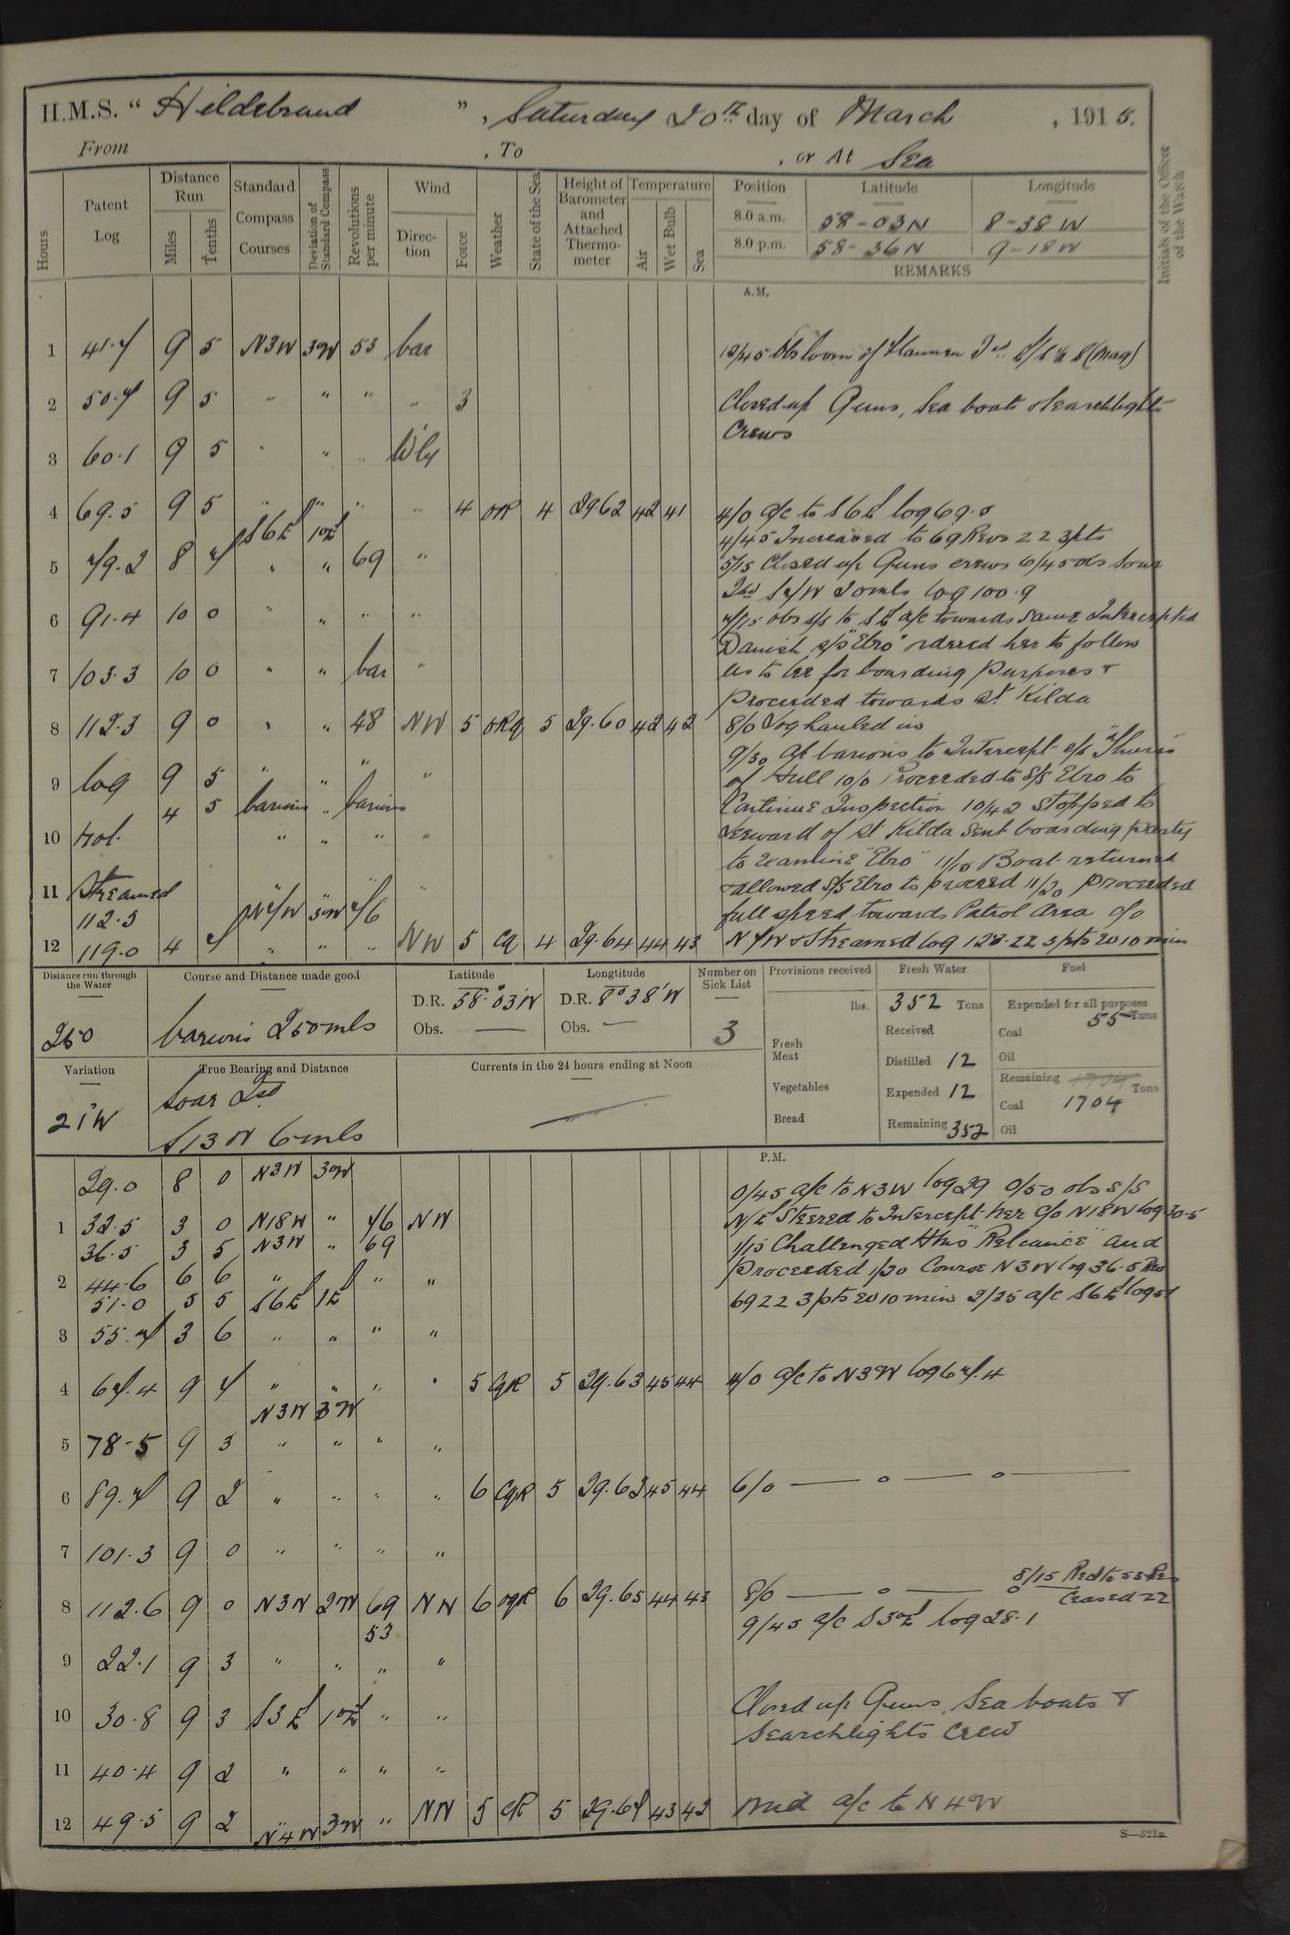 H.M.S. “ Hildebrand ”, Saturday 20th day of March , 1915.
From , To , or At Sea
Hours
Patent Log
Distance Run
Miles
Tenths
Standard Compass Courses
Deviation of Standard Compass
Revolutions per minute
Wind
Direction
Force
Weather
State of the Sea
Height of Barometer and Attached Thermometer
Temperature
Air
Wet Bulb
Sea
Position Latitude Longitude
8.0 a.m. 58-03N 8-38 W
8.0 p.m. 58-36N 9-18W
REMARKS
Initials of the Officer of the Watch
A.M.
1 41.7 9 5 N3W 3W 53 var
Closed up Guns, Sea boats & Searchlights
2 50.7 9 5 " " " " 3
Crews
3 60.1 9 5 " " " W'ly
4 69.5 9 5 " " " " 4 OR 4 29.62 42 41 4/0 a/c to S6E log 69.5
S6E 1E
4/45 Increased to 69 Revs 22 3pts
5 79.2 8 7 " " 69 " 5/15 Closed up Guns crews 6/45 obs
log 100.9
6 91.4 10 0 " " " " 7/15 obs s/s to SE a/c towards same Intercepted
Danish s/s "Ebro" ordered her to follow
7 103.3 10 0 " " var " us to lee for boarding purposes &
Proceeded towards St Kilda
8 112.3 9 0 " " 48 NW 5 ORq 5 29.60 42 42 8/0 log hauled in
9/30 a/c various to Intercept s/s
9 log 9 5 " " " " of Hull 10/0 Proceeded to S/S Ebro to
4 5 various " various
Continue Inspection 10/42 Stopped to
10 rot. " " " " Leeward of St Kilda Sent boarding party
to examine "Ebro" 11/15 Boat returned
11 Streamed " & allowed S/S Ebro to proceed 11/20 Proceeded
112.3 N7W 3W 76
full speed towards Patrol Area c/o
12 119.0 4 7 " " " NW 5 cq 4 29.64 44 43 N7W & Streamed log 22 3pts 20 10 min
Distance run through the Water
250
Course and Distance made good
various 250 mls
Latitude
D.R. 58° 03'N
Obs. —
Longtitude
D.R. 8° 38'W
Obs. —
Number on Sick List
3
Provisions received
lbs.
Fresh Meat
Vegetables
Bread
Fresh Water
352 Tons
Received
Distilled 12
Expended 12
Remaining 352
Fuel
Expended for all purposes
Coal 55 Tons
Oil
Remaining Tons
Coal 1704
Oil
Variation
21°W
True Bearing and Distance
Soay Isd
6 mls
Currents in the 24 hours ending at Noon
P.M.
29.0 8 0 N3W 3W 0/45 a/c to N3W log 29 0/50 obs S/S
1 32.5 3 0 N18W " 76 NW N/E Steered to Intercept her c/o N18W log 30.5
36.5 3 5 N3W " 69 1/15 Challenged HMS "Reliance" and
2 44.6 6 6 " " " Proceeded 1/30 Course N3W log 36.5 Rev
51.0 5 5 S6E 1E 69 22 3pts 20 10 min 2/35 a/c S6E log 51
3 55.7 3 6 " " " "
4 67.4 9 7 " " " " 5 CqR 5 29.63 45 44 4/0 a/c to N3W log 67.4
N3W 3W
5 78.5 9 3 " " " "
6 89.7 9 2 " " " " 6 CqR 5 29.63 45 44 6/0 — o — o —
7 101.3 9 0 " " " "
8/15 Red to 53 Rev
8 112.6 9 0 N3W 2W 69 NW 6 oqR 6 29.65 44 43 8/0 — o — o — Ceased 22
53
9/45 a/c S3E log 28.1
9 22.1 9 3 " " " "
10 30.8 9 3 S3E 1E " " Closed up Guns, Sea boats &
Searchlights Crew
11 40.4 9 2 " " " "
12 49.5 9 2 " 3W " NW 5 cR 5 29.67 43 42 Mid a/c to N4W
N4W
S—521a